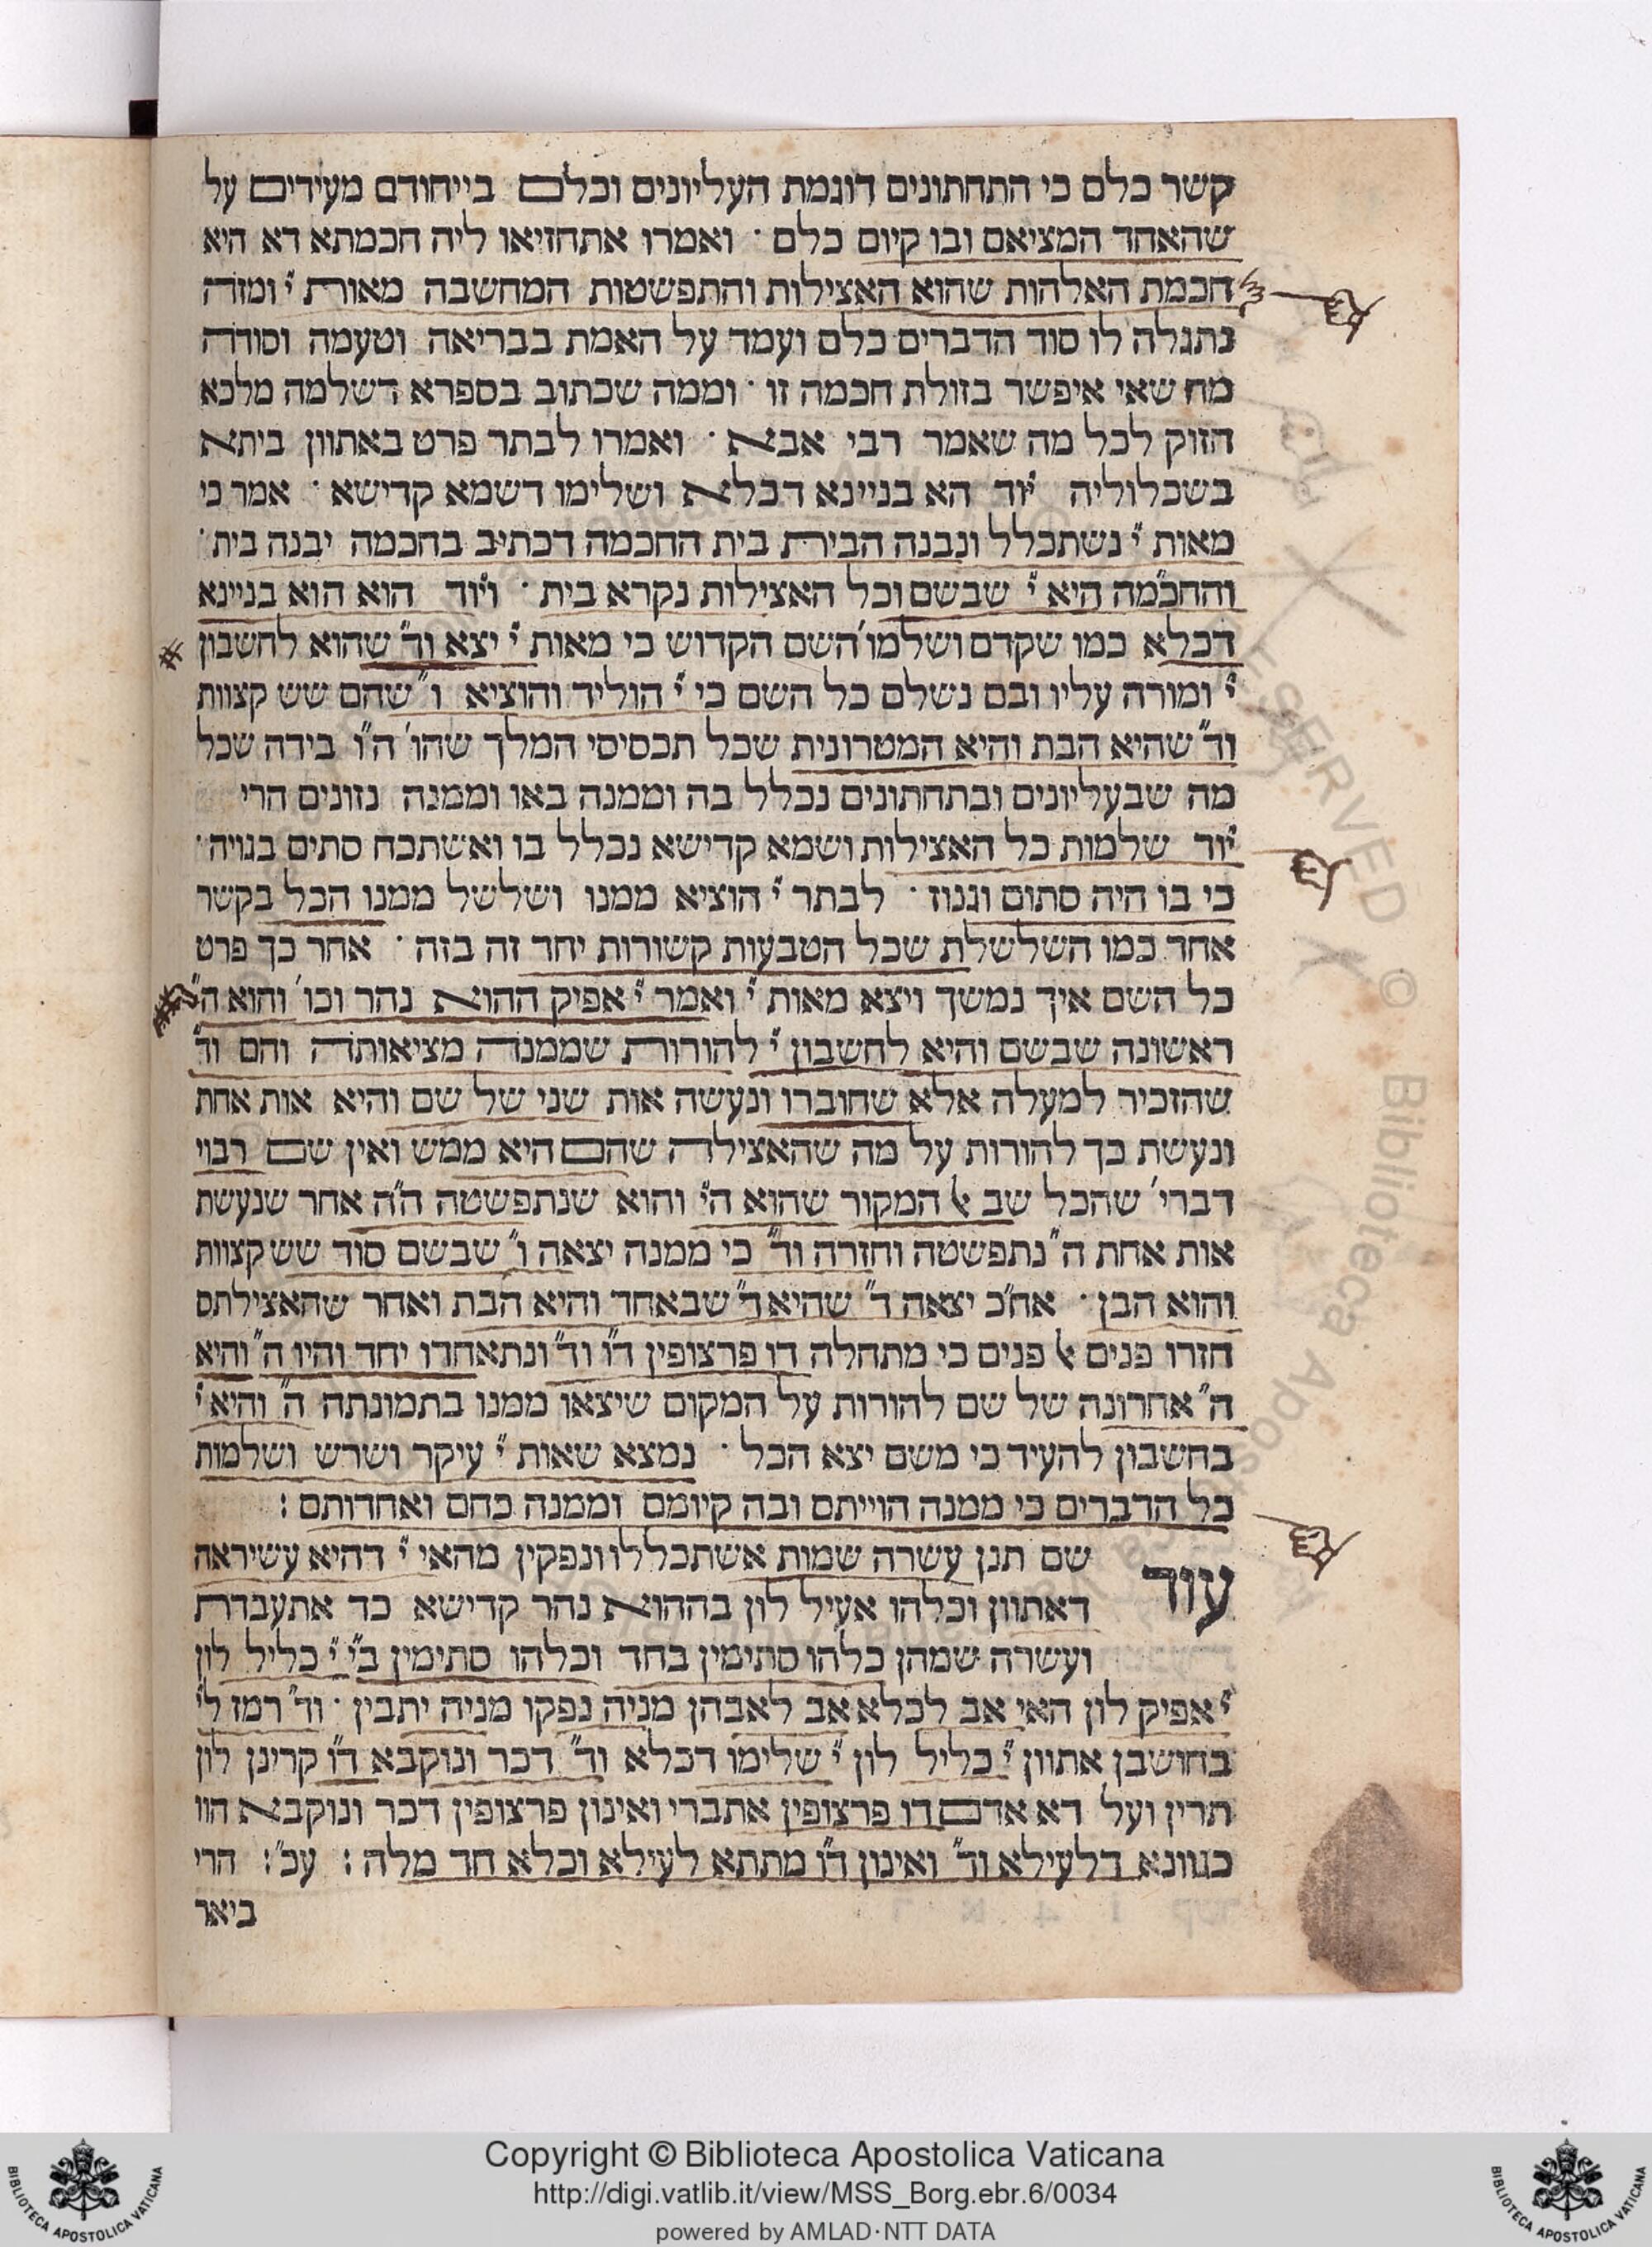 קשר כלם כי התחתונים דוגמת העליונים וכלם בייחודם מעידים על
שהאחד המציאם ובו קיום כלם · ואמרו אתחזיאו ליה חכמתא דא היא
חכמת האלהות שהוא האצילות והתפשטות המחשבה מאות י״ ומזה
נתגלה לו סוד הדברים כלם ועמד על האמת בבריאה וטעמה וסודה
מה שאי איפשר בזולת חכמה זו · וממה שכתוב בספרא דשלמה מלכא
הזוק לכל מה שאמר רבי אבא · ואמרו לבתר פרט באתוון ביתא
בשכלוליה יוד הא בניינא דכלא ושלימו דשמא קדישא · אמר כי
מאות י״ נשתכלל ונבנה הבית בית החכמה דכתיב בחכמה יבנה בית ·
והחכמה היא י״ שבשם וכל האצילות נקרא בית · ויוד הוא הוא בניינא
דכלא כמו שקדם ושלמו׳ השם הקדוש כי מאות י״ יצא וד״ שהוא לחשבון
י״ ומורה עליו ובם נשלם כל השם כי י״ הוליד והוציא ו״ שהם שש קצוות
וד״ שהיא הבת והיא המטרונית שכל תכסיסי המלך שהו׳ ה״ו בידה שכל
מה שבעליונים ובתחתונים נכלל בה וממנה באו וממנה נזונים הרי
יוד שלמות כל האצילות ושמא קדישא נכלל בו ואשתכח סתים בגויה ·
כי בו היה סתום וגנוז · לבתר י״ הוציא ממנו ושלשל ממנו הכל בקשר
אחד כמו השלשלת שכל הטבעות קשורות יחד זה בזה · אחר כך פרט
כל השם איך נמשך ויצא מאות י״ ואמר י״ אפיק ההוא נהר וכו׳ והוא ה״
ראשונה שבשם והיא לחשבון י״ להורות שממנה מציאותה והם וד״
שהזכיר למעלה אלא שחוברו ונעשה אות שני של שם והיא אות אחת
ונעשת כך להורות על מה שהאצילה שהם היא ממש ואין שם רבוי
דברי׳ שהכל שב אל המקור שהוא הי״ והוא שנתפשטה ה״ה אחר שנעשת
אות אחת ה״ נתפשטה וחזרה וד״ כי ממנה יצאה ו״ שבשם סוד שש קצוות
והוא הבן · אח״כ יצאה ד״ שהיא ד״ שבאחד והיא הבת ואחר שהאצילתם
חזרו פנים אל פנים כי מתחלה דו פרצופין ד״ו וד״ ונתאחדו יחד והיו ה״ והיא
ה״ אחרונה של שם להורות על המקום שיצאו ממנו בתמונתה ה״ והיא י״
בחשבון להעיד כי משם יצא הכל · נמצא שאות י״ עיקר ושרש ושלמות
כל הדברים כי ממנה הוייתם ובה קיומם וממנה כחם ואחדותם :
עוד שם תנן עשרה שמות אשתכללו ונפקין מהאי י״ דהיא עשיראה
דאתוון וכלהו אעיל לון בההוא נהר קדישא כד אתעברת
ועשרה שמהן כלהו סתימין בחד וכלהו סתימין בי״ י״ כליל לון
י״ אפיק לון האי אב לכלא אב לאבהן מניה נפקו מניה יתבין · וד״ רמז לי״
בחושבן אתוון י״ כליל לון י״ שלימו דכלא וד״ דכר ונוקבא ד״ו קרינן לון
תרין ועל דא אדם דו פרצופין אתברי ואינון פרצופין דכר ונוקבא הוו
כגוונא דלעילא וד״ ואינון ד״ו מתתא לעילא וכלא חד מלה : עכ״ : הרי
ביאר
Copyright © Biblioteca Apostolica Vaticana
http://digi.vatlib.it/view/MSS_Borg.ebr.6/0034
powered by AMLAD·NTT DATA
BIBLIOTECA APOSTOLICA VATICANA
BIBLIOTECA APOSTOLICA VATICANA